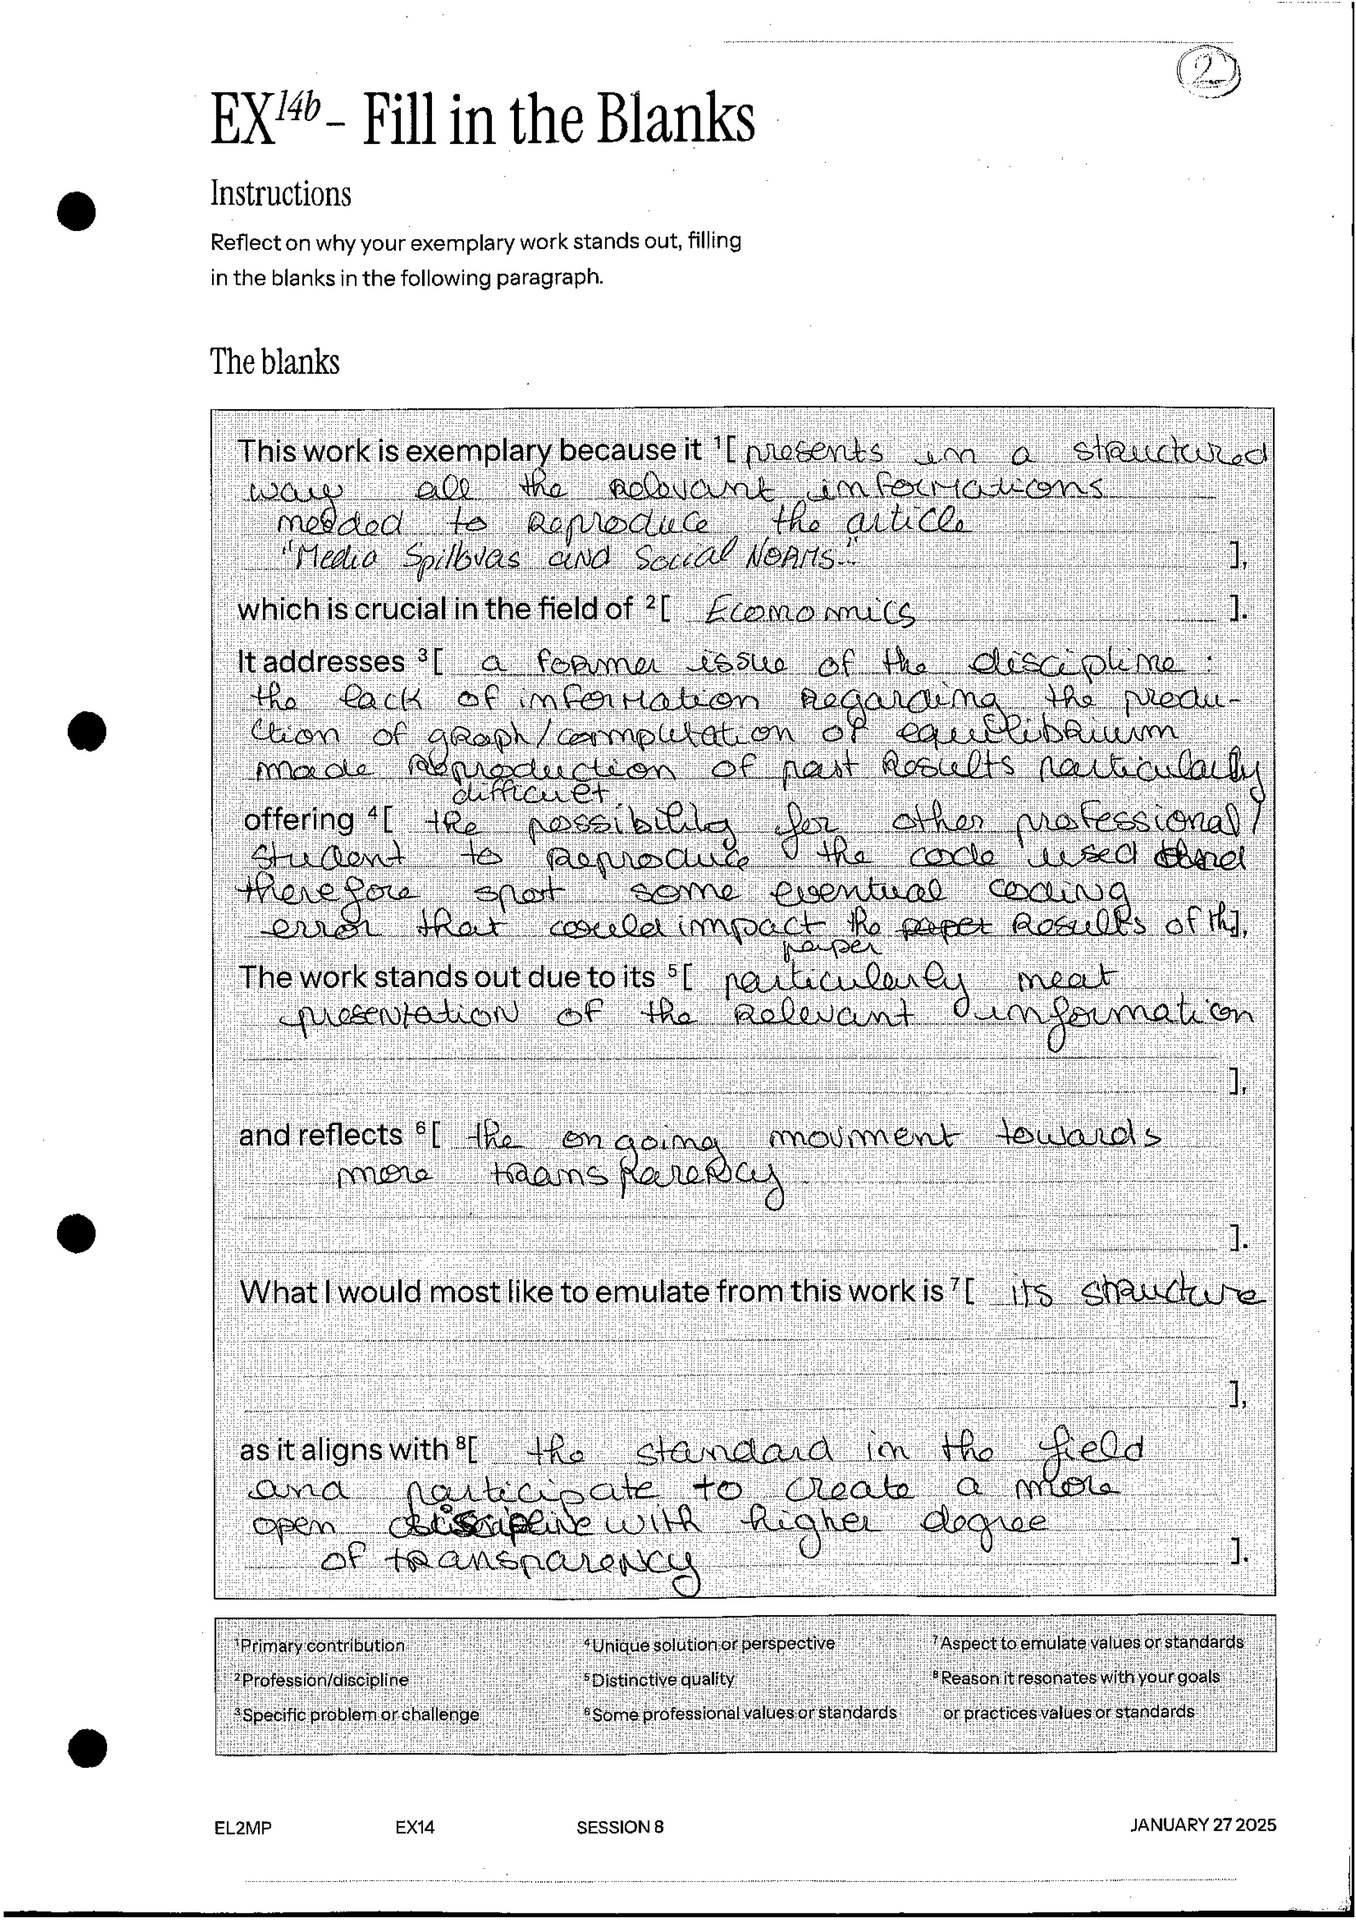 2
EX14b – Fill in the Blanks
Instructions
Reflect on why your exemplary work stands out, filling
in the blanks in the following paragraph.
The blanks
This work is exemplary because it 1[ presents in a structured
way all the relevant informations
needed to reproduce the article
"Media Spillovas and Social NORMS" ],
which is crucial in the field of 2[ Economics ].
It addresses 3[ a former issue of the discipline :
the lack of information regarding the produ-
ction of graph/computation of equilibrium
made Reproduction of past Results particularly
difficult.
offering 4[ the possibility for other professional/
student to reproduce the code used and
therefore spot some eventual coding
error that could impact the paper Results of th],
paper
The work stands out due to its 5[ particularly neat
presentation of the relevant information
],
and reflects 6[ the ongoing movment towards
more transparency
].
What I would most like to emulate from this work is 7[ its structure
],
as it aligns with 8[ the standard in the field
and participate to create a more
open discipline with higher degree
of transparency ].
1Primary contribution
2Profession/discipline
3Specific problem or challenge
4Unique solution or perspective
5Distinctive quality
6Some professional values or standards
7Aspect to emulate values or standards
8Reason it resonates with your goals
or practices values or standards
EL2MP EX14 SESSION 8 JANUARY 27 2025